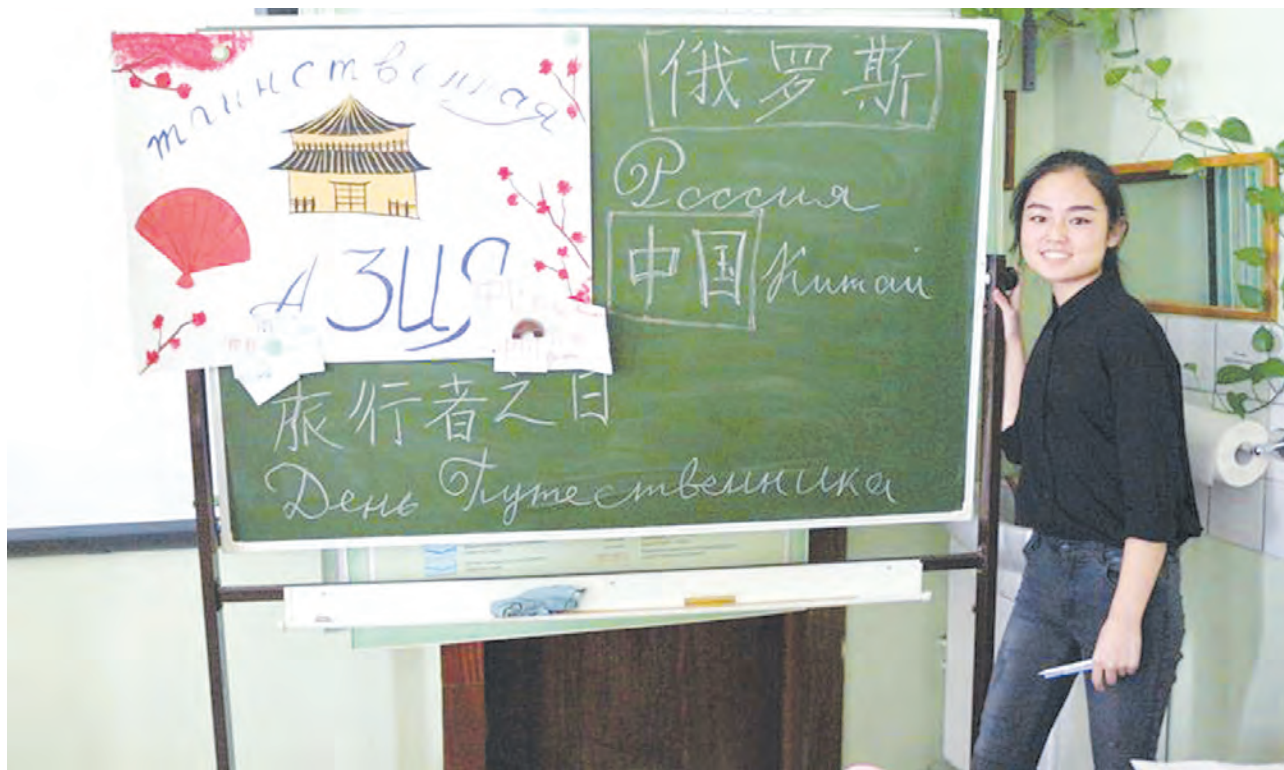 таинственная
АЗИЯ
俄罗斯
Россия
中国 Китай
旅行者之日
День Путешественника